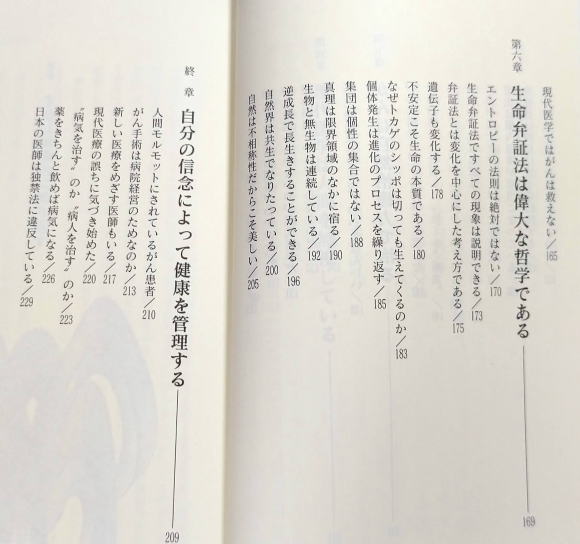 現代医学ではがんは救えない／165
第六章 生命弁証法は偉大な哲学である――169
エントロピーの法則は絶対ではない／170
生命弁証法ですべての現象は説明できる／173
弁証法とは変化を中心にした考え方である／175
遺伝子も変化する／178
不安定こそ生命の本質である／180
なぜトカゲのシッポは切っても生えてくるのか／183
個体発生は進化のプロセスを繰り返す／185
集団は個性の集合ではない／188
真理は限界領域のなかに宿る／190
生物と無生物は連続している／192
逆成長で長生きすることができる／196
自然界は共生でなりたっている／200
自然は不相称性だからこそ美しい／205
終章 自分の信念によって健康を管理する――209
人間モルモットにされているがん患者／210
がん手術は病院経営のためなのか／213
新しい医療をめざす医師もいる／217
現代医療の誤ちに気づき始めた／220
〝病気を治す〟のか〝病人を治す〟のか／223
薬をきちんと飲めば病気になる／226
日本の医師は独禁法に違反している／229